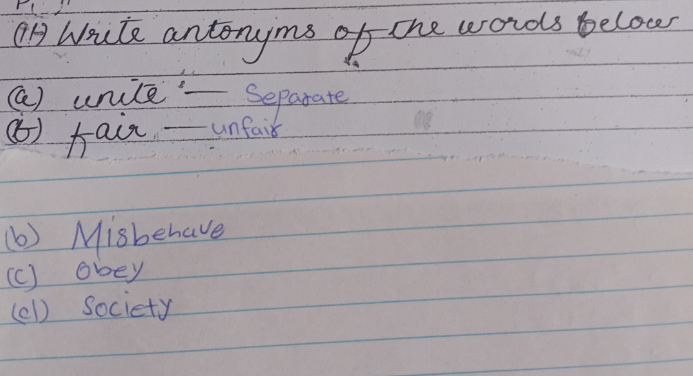 (A) Write antonyms of the words below
(a) unite — Separate
(b) fair — unfair
(b) Misbehave
(c) obey
(d) Society